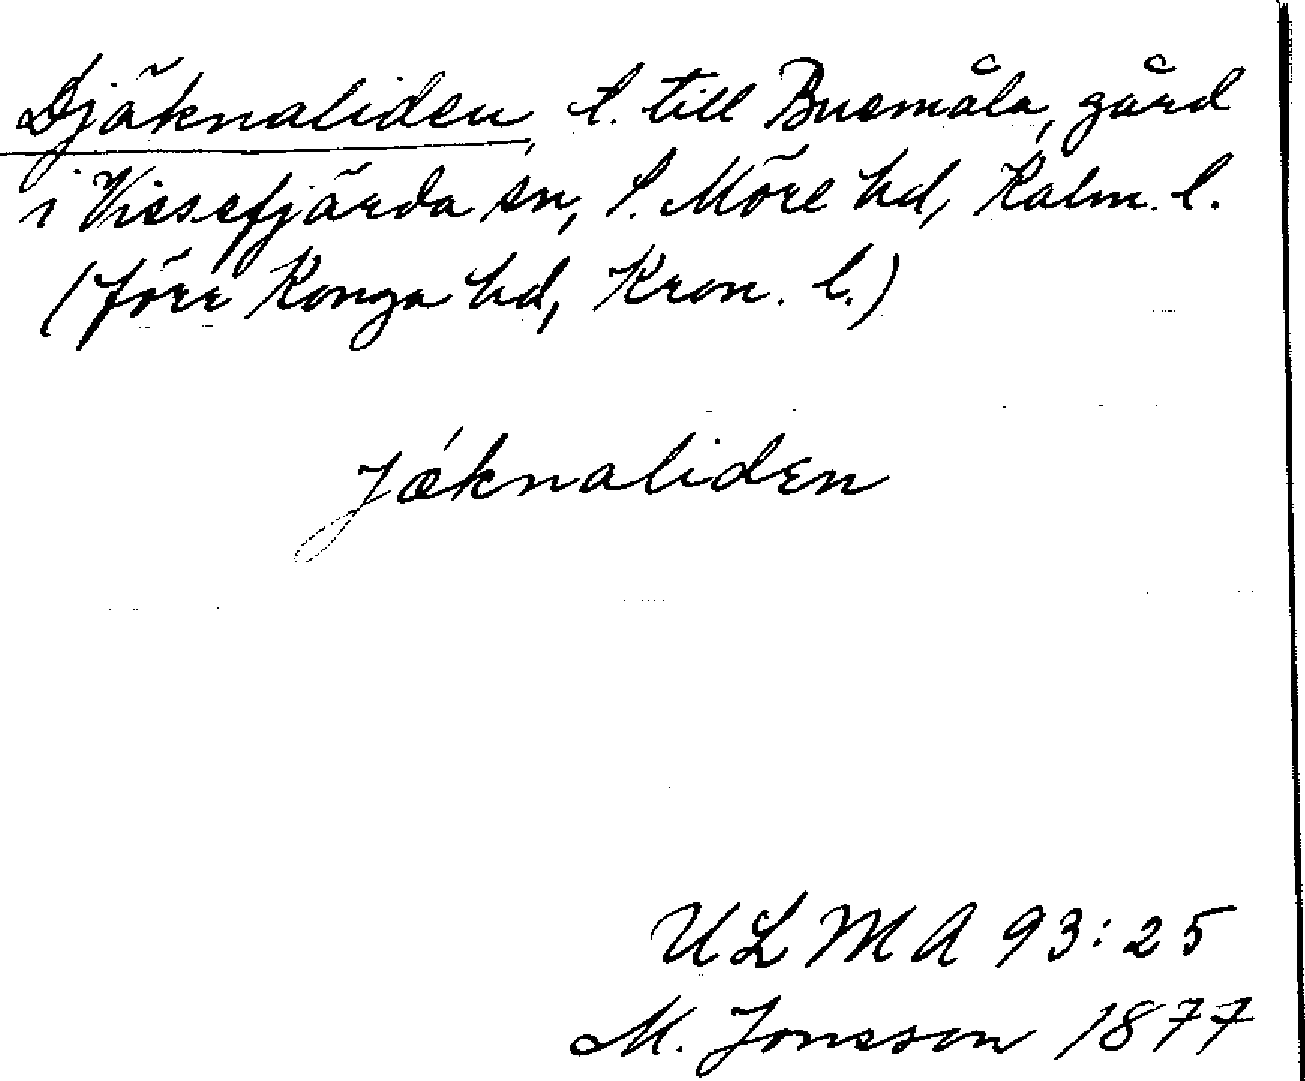 Djäknaliden, t. till Busmåla, gård
i Vissefjärda sn, S. Möre hd, Kalm. l.
(förr Konga hd, Kron. l.)
Jǽknaliden
ULMA 93:25
M. Jonsson 1877